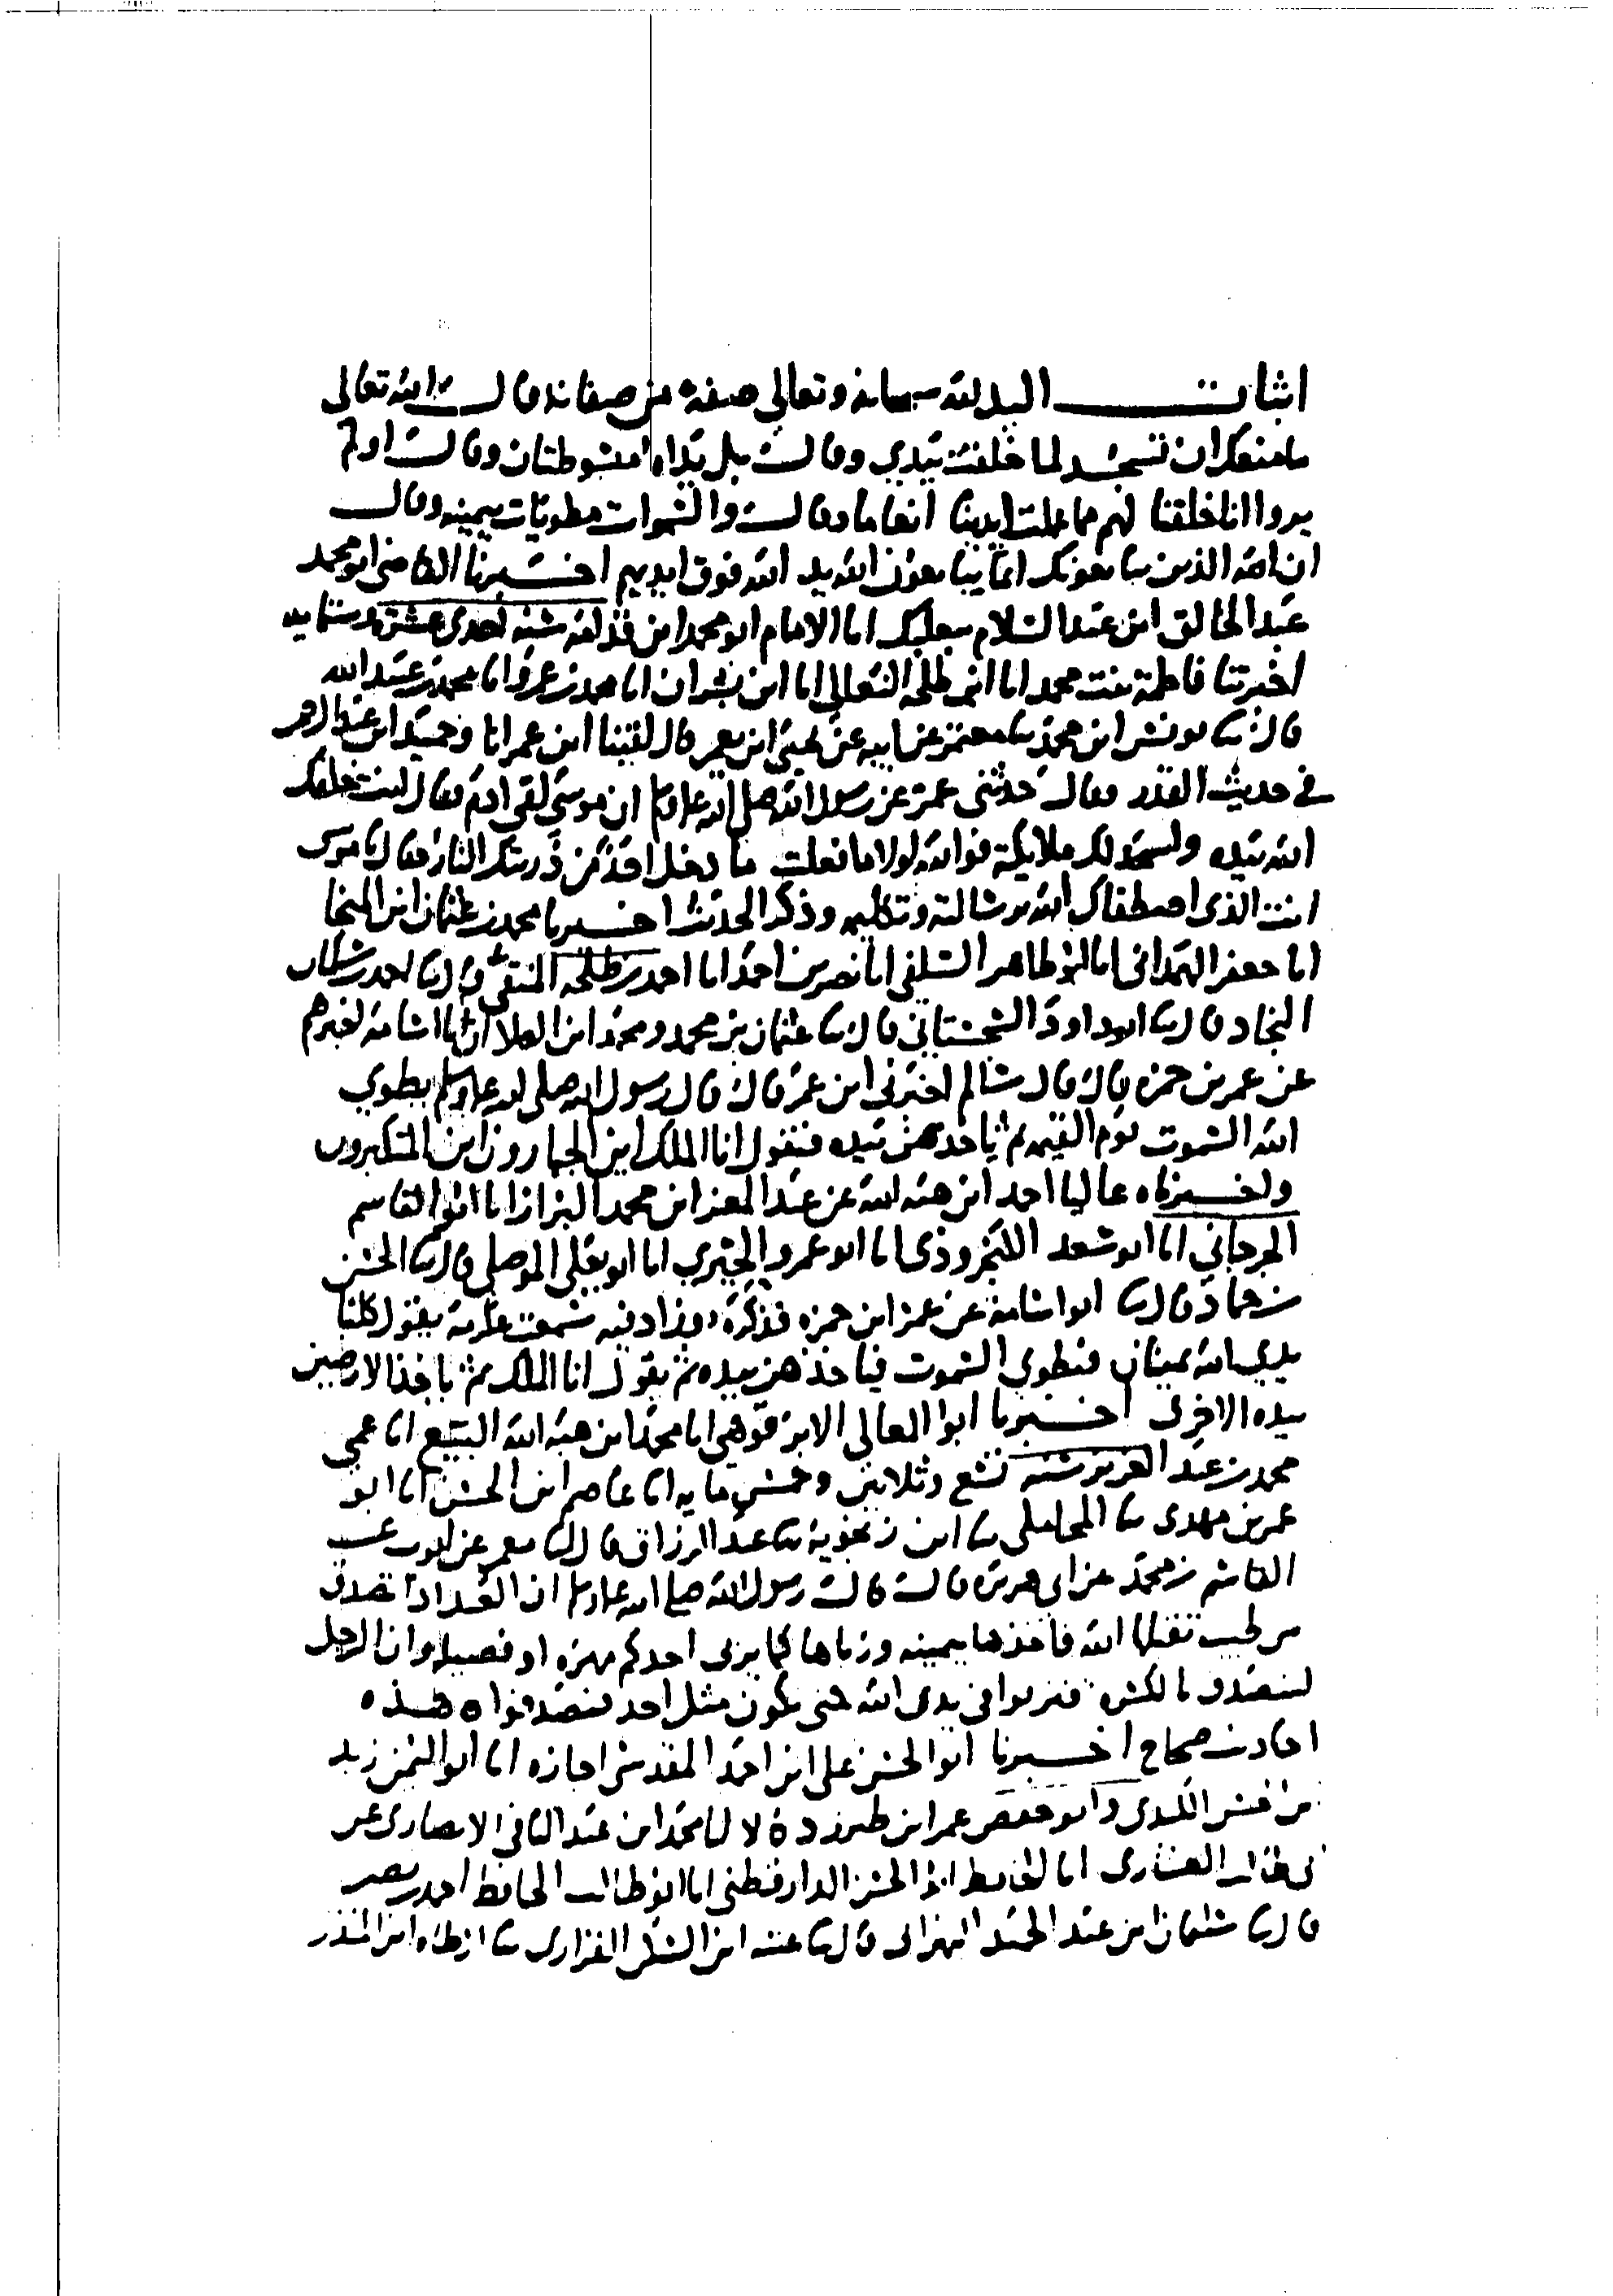 اثبات اليد لله سبحانه وتعالى صفة من صفاته قال الله تعالى
ما منعك ان تسجد لما خلقت بيدي وقال بل يداه مبسوطتان وقال اولم
يروا انا خلقنا لهم مما عملت ايدينا انعاما وقال والسموات مطويات بيمينه وقال
ان الذين يبايعونك انما يبايعون الله يد الله فوق ايديهم اخبرنا القاضي ابو محمد
عبد الخالق ابن عبد السلام ببعلبك انا الامام ابو محمد ابن قدامه سنه احدى عشره وستمايه
اخبرتنا فاطمة بنت محمد انا ابن طلحه النعالي انا ابن بشران انا محمد بن عمرو انا محمد بن عبيد الله
قال ثنا يونس ابن محمد ثنا معتمر عن ابيه عن يحيى ابن يعمر قال لقينا ابن عمر انا وحميد ابن عبد الرحمن
في حديث القدر فقال حدثني عمر عن رسول الله صلى الله عليه وسلم ان موسى لقي ادم فقال انت خلقك
الله بيده واسجد لك ملايكته فوالله لولا ما فعلت ما دخل احد من ذريتك النار فقال يا موسى
انت الذي اصطفاك الله برسالته وتكليمه وذكر الحديث اخبرنا محمد بن عثمان ابن المنجا
انا جعفر الهمداني انا ابو طاهر السلفي انا نصر بن احمد انا احمد بن طلحه المنقي قال ثنا احمد بن سلمان
النجاد قال ثنا ابو داود السجستاني قال ثنا عثمان بن محمد ومحمد ابن العلا ان ابا اسامة اخبرهم
عن عمر بن حمزه قال قال سالم اخبرني ابن عمر قال قال رسول الله صلى الله عليه وسلم يطوي
الله السموت يوم القيمه ثم ياخذهن بيده فيقول انا الملك اين الجبارون اين المتكبرون
واخبرناه عاليا احمد ابن هبه الله عن عبد المعز ابن محمد البزاز انا ابو القاسم
الجرجاني انا ابو سعد الكنجروذي انا ابو عمرو الحيري انا ابو يعلى الموصلي قال ثنا الحسن
بن حماد قال ثنا ابو اسامة عن عمر ابن حمزه فذكره وزاد فيه سمعت عكرمة يقول كلتا
يدي الله يمينان فيطوي السموت فياخذهن بيده ثم يقول انا الملك ثم ياخذ الارضين
بيده الاخرى اخبرنا ابو المعالي الابرقوهي انا محمد ابن هبه الله البيع انا عمي
محمد بن عبد العزيز سنه تسع وثلاثين وخمس مايه انا عاصم ابن الحسن انا ابو
عمر بن مهدي ثنا المحاملي ثنا ابن زنجويه ثنا عبد الرزاق قال ثنا معمر عن ايوب عن
القاسم بن محمد عن ابي هريره قال قال رسول الله صلى الله عليه وسلم ان العبد اذا تصدق
من طيب تقبلها الله فاخذها بيمينه ورباها كما يربي احدكم مهره او فصيله وان الرجل
ليتصدق بالكسرة فتربوا في يدي الله حتى يكون مثل احد فتصدقوا ه هذه
احاديث صحاح اخبرنا ابو الحسن علي ابن احمد المقدسي اجازه انا ابو اليمن زيد
بن الحسن الكندي وابو حفص عمر ابن طبرزد قالا انا محمد ابن عبد الباقي الانصاري عن
ابي طالب العشاري انا الحافظ ابو الحسن الدارقطني انا ابو طالب الحافظ احمد بن نصر
قال ثنا سليمان ابن عبد الحميد البهراني قال ثنا عتبه ابن السكن الفزاري ثنا ارطاه ابن المنذر